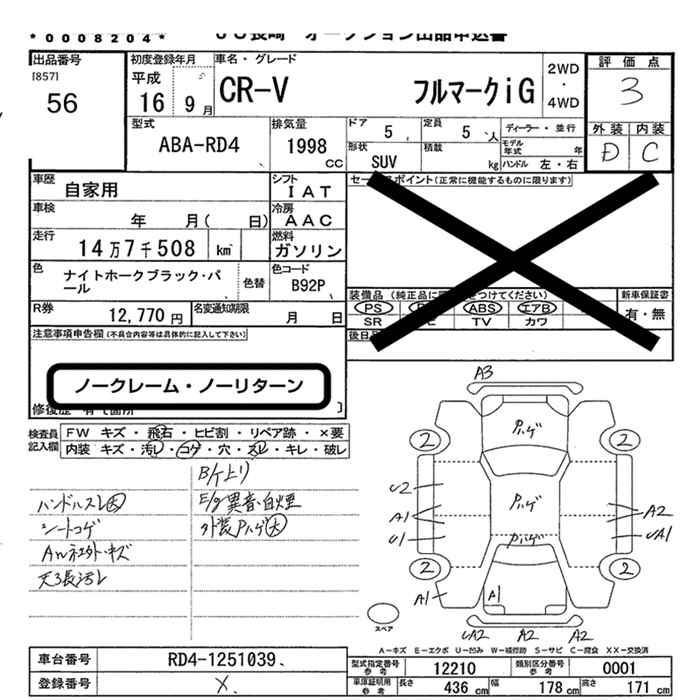 *0008204*
JU長崎 オークション出品申込書
出品番号
[857]
56
初度登録年月
平成
16 9 月
車名・グレード
CR-V フルマークiG
2WD
・
4WD
評価点
3
外装 内装
D C
型式
ABA-RD4
排気量
1998
CC
ドア
5
定員
5 人
ディーラー・並行
モデル年式 年
形状
SUV
積載
kg
ハンドル 左・右
車歴
自家用
シフト
IAT
車検
年 月( 日)
冷房
AAC
走行
14万7千508 km
燃料
ガソリン
色
ナイトホークブラック・パール
色替
色コード
B92P
R券
12,770 円
名変通知期限
月 日
セールスポイント(正常に機能するものに限ります)
装備品 (純正品に をつけてください)
PS ABS エアB
SR TV カワ
新車保証書
有・無
後日
注意事項申告欄(不具合内容等は具体的に記入して下さい)
ノークレーム・ノーリターン
修復歴 有( 箇所 )
検査員
記入欄
FW キズ・飛石・ヒビ割・リペア跡・×要
内装 キズ・汚レ・コゲ・穴・スレ・キレ・破レ
B/ケ上り
ハンドルスレ大
E/g異音・白煙
シートコゲ
外装Pハゲ大
天張汚レ
A3
Pハゲ
2 2
U2
Pハゲ
A1 A2
U1 UA1
Pハゲ
2 2
A1 A1
スペア
UA2 A2 A2
A-キズ E-エクボ U-凹み W-補修跡 S-サビ C-腐食 XX-交換済
車台番号
RD4-1251039
登録番号
X
型式指定番号
参考
12210
類別区分番号
参考
0001
車庫証明用
参考
長さ 436 cm 幅 178 cm 高さ 171 cm